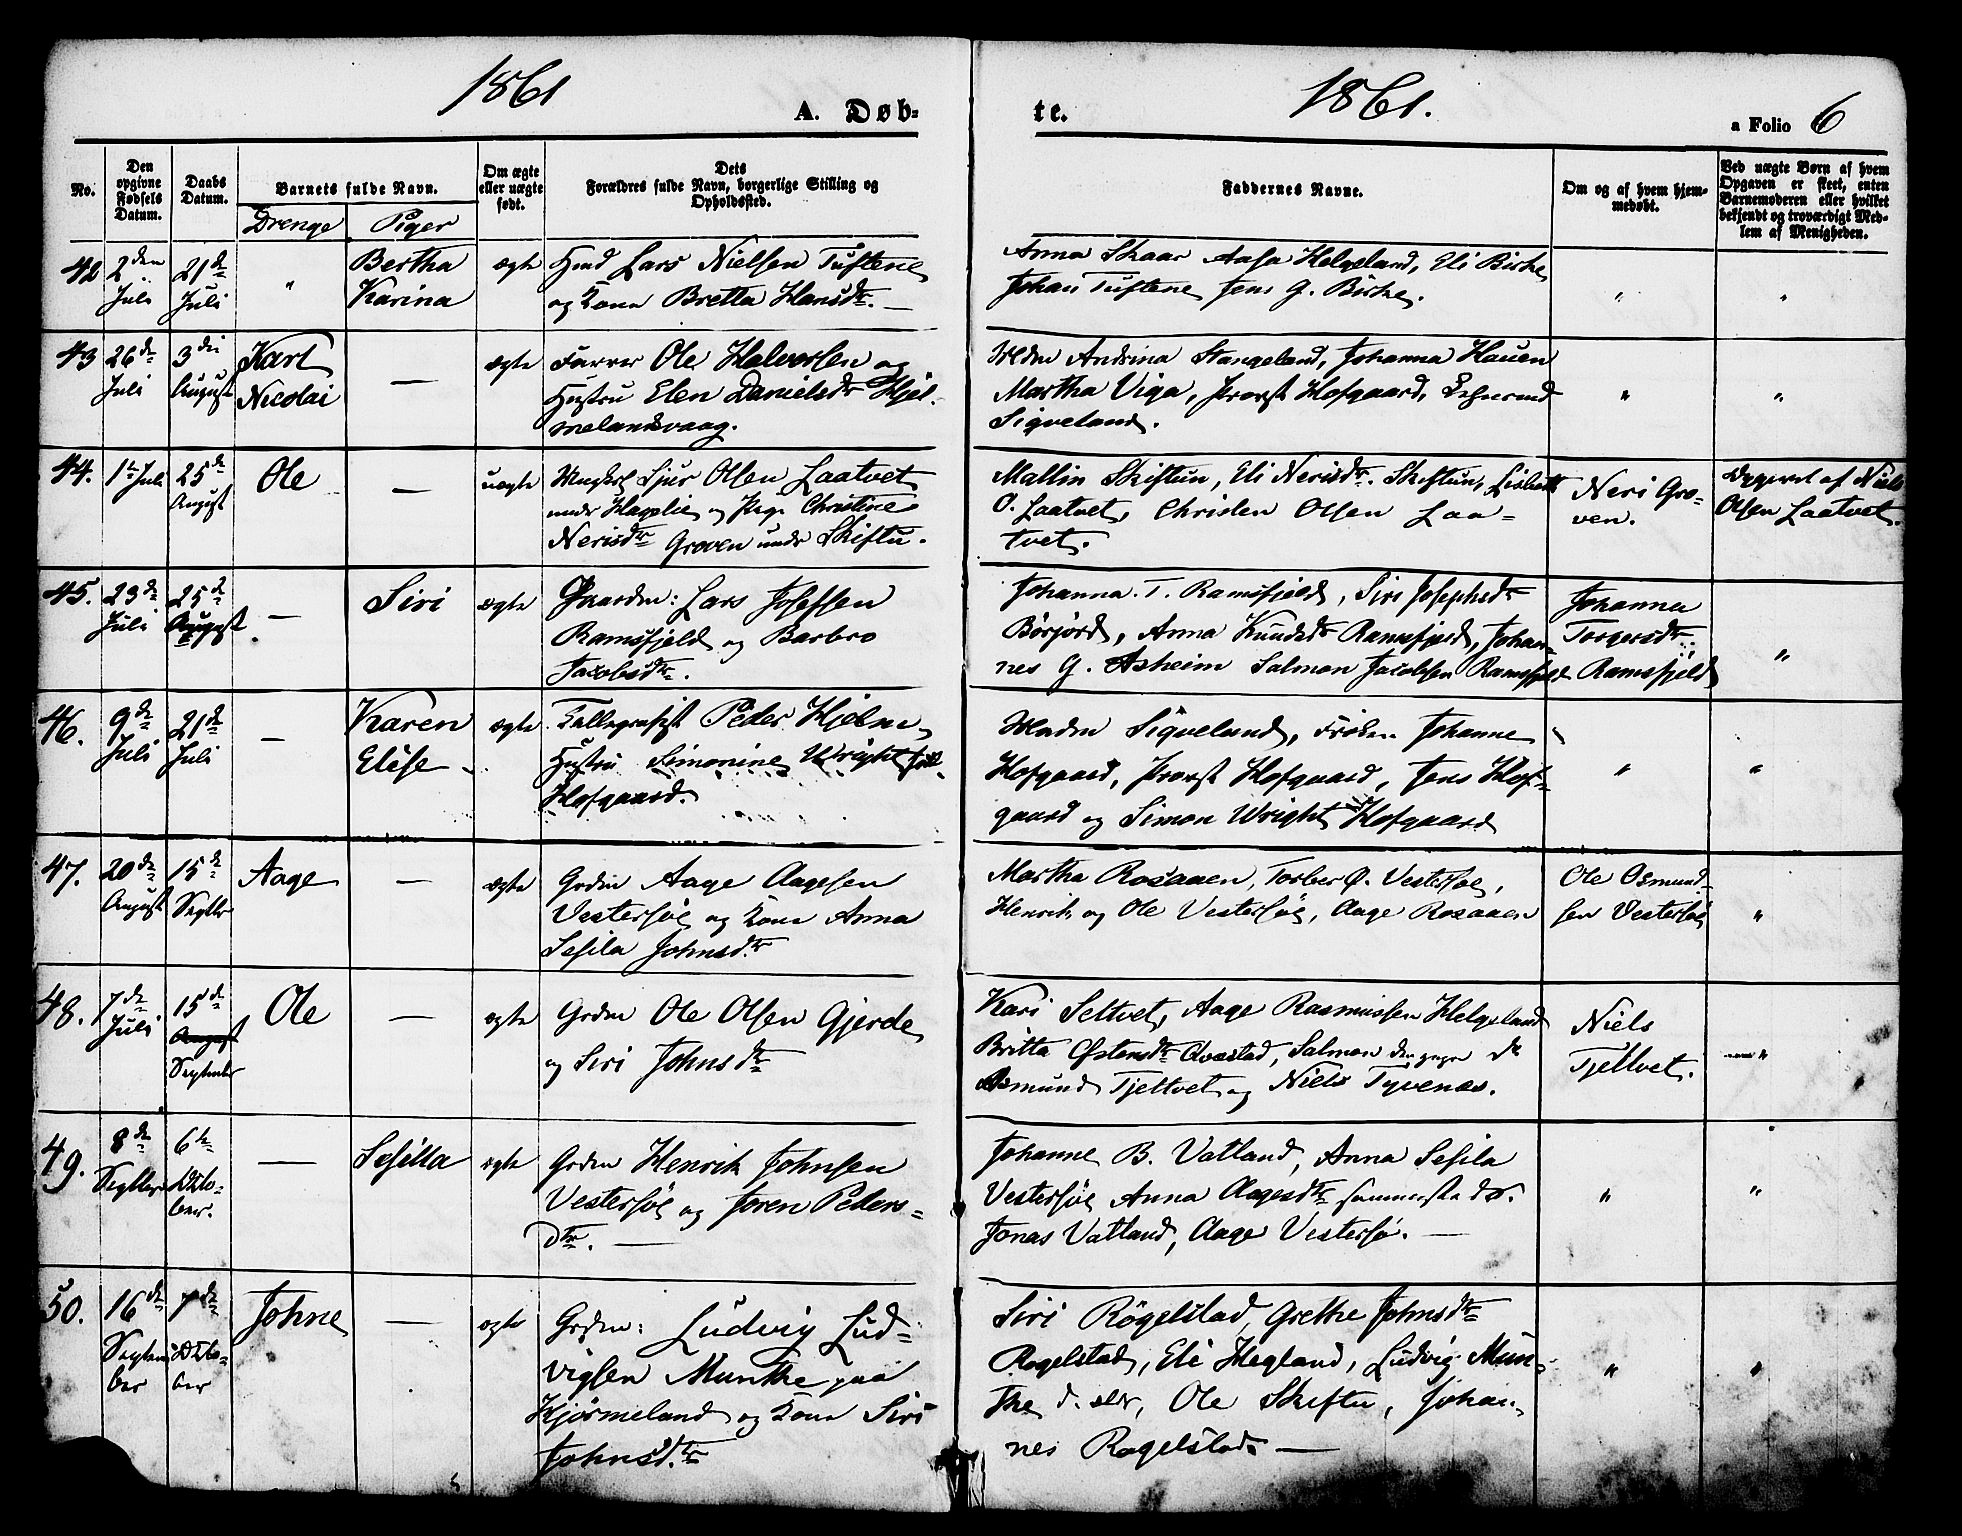 1861
A. Døb-
te.
1861.
a Folio 6
No.
Den opgivne Fødsels Datum.
Daabs Datum.
Barnets fulde Navn.
Drenge
Piger
Om ægte eller uægte født.
Dets Forældres fulde Navn, borgerlige Stilling og Opholdssted.
Faddernes Navne.
Om og af hvem hjemmedøbt.
Ved uægte Børn af hvem Opgaven er skeet, enten Barnemoderen eller hvilket bekjendt og troværdigt Medlem af Menigheden.
42 2den Juli 21de Juli " Bertha Karina ægte
Hmd Lars Nielsen Tuftene
og Kone Bretta Hansdtr. —
Anna Skaar Aasa Helgeland, Eli Birke
Johan Tuftene Jens G. Birke.
" "
43 26de Juli 3die August Karl Nicolai — ægte
Farver Ole Halvorsen og
Hustru Elen Danielsdtr Hjel-
melandsvaag.
Andrina Stangeland, Johanna Hauen
Martha Viga, Provst Hofgaard,
Siqveland.
" "
44. 1te Juli 25de August Ole — uægte
Ungkarl Sjur Olsen Laatvet
under Hagalie og Pige Christine
Nerisdtr Groven under Skiftu.
Mallin Skiftun, Eli Nerisdtr. Skiftun, Lisbeth
O. Laatvet, Christen Olsen Laa-
tvet.
Neri Gro-
ven.
Opgivet af Niels
Olsen Laatvet.
45. 23de Juli 25de August — Siri ægte
Gaardm: Lars Josefsen
Ramsfjeld og Barbro
Jacobsdtr.
Johanna T. Ramsfjeld, Siri Josephsdtr
Börjörd, Anna Knudsdtr Ramsfjeld, Johan-
nes G. Asheim Salmon Jacobsen Ramsfjeld
Johanna
Torgersdtr.
Ramsfjeld
"
46. 9de Juli 21de Juli — Karen Elise ægte
Tellegrafist Peder Hjelm
Hustru Simonine Wright född
Hofgaard.
Siqveland, Frøken Johanne
Hofgaard, Provst Hofgaard, Jens Hof-
gaard og Simon Wright Hofgaard
" "
47. 20de August 15de Septbr Aage — ægte
Grdm Aage Aagesen
Vestersöe og Kone Anna
Sesila Johnsdtr
Martha Rosaaen, Torber Ø. Vestersöe,
Henrik og Ole Vestersöe, Aage Rosaaen
Ole Osmund-
sen Vestersöe
"
48. 7de Juli 15de August September Ole — ægte
Grdm Ole Olsen Gjerde
og Siri Johnsdtr
Kari Seltvet, Aage Rasmussen Helgeland
Britta Østensdtr Qvæstad, Salmon den yngre do
Asmund Tjeltvet og Niels Tyvenæs.
Niels
Tjeltvet.
"
49. 8de Septbr 6te Okto-
ber. — Sesilla ægte
Grdm Henrik Johnsen
Vestersöe og Joren Peders-
dtr. —
Johanne B. Vatland, Anna Sesila
Vestersöe Anna Aagesdtr sammesteds.
Jonas Vatland, Aage Vestersö. —
" "
50. 16de Septem-
ber 7de Okto-
ber Johne — ægte
Grdm: Ludvig Lud-
vigsen Munthe paa
Hjörmeland og Kone Siri
Johnsdtr.
Siri Rögelstad, Grethe Johnsdtr
Rogelstad, Eli Hegland, Ludvig Mun-
the d. eldr, Ole Skiftu, Johan-
nes Rogelstad. —
" "